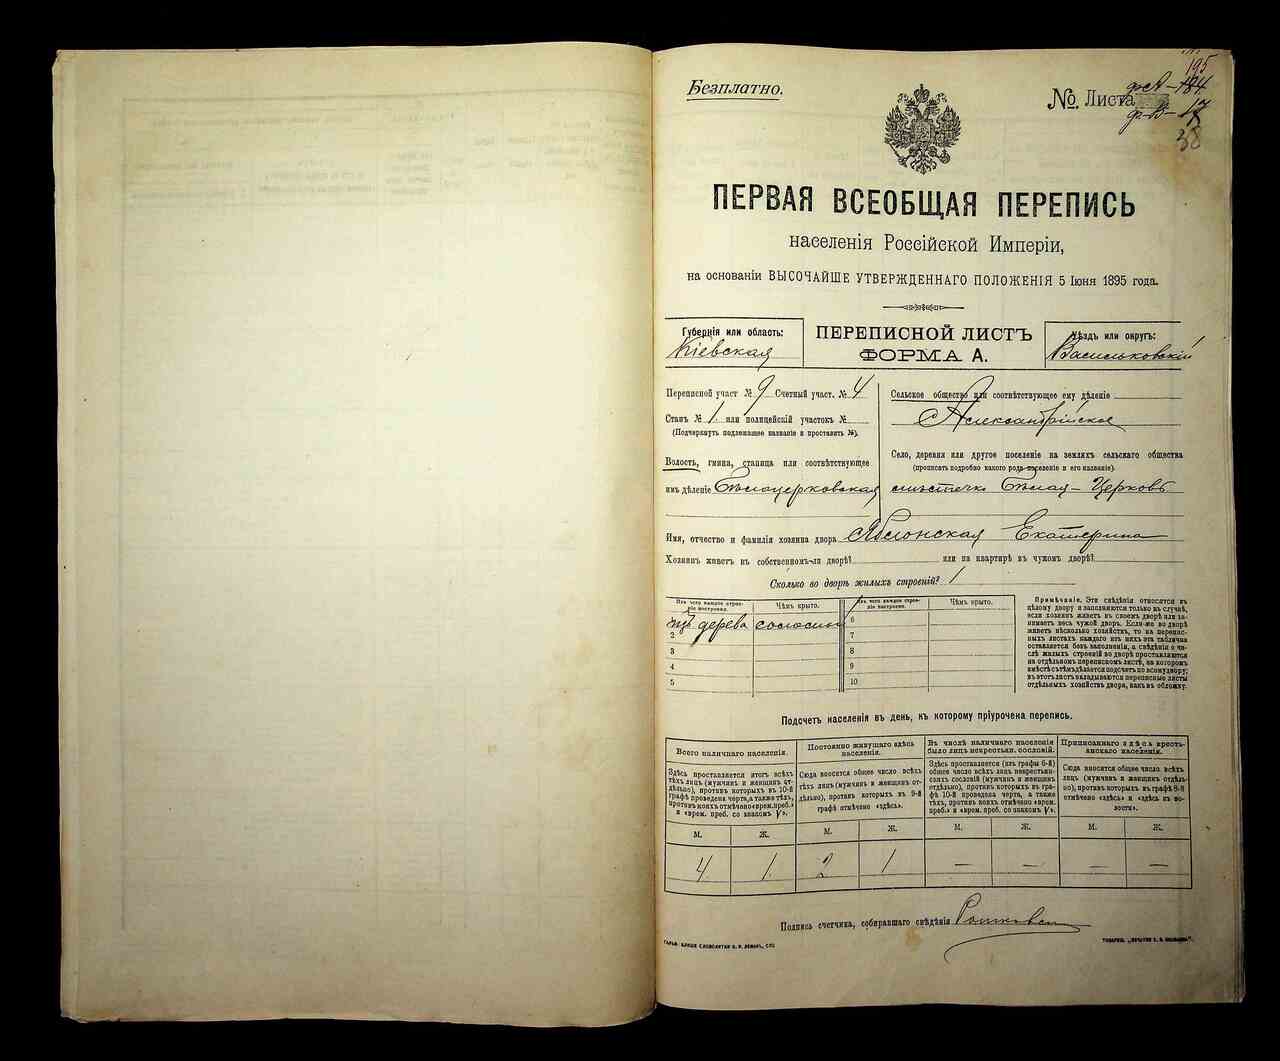 195
Безплатно.
№ Листа
ф.А-184
ф.Б-17
38
ПЕРВАЯ ВСЕОБЩАЯ ПЕРЕПИСЬ
населенія Россійской Имперіи,
на основаніи ВЫСОЧАЙШЕ УТВЕРЖДЕННАГО ПОЛОЖЕНІЯ 5 Іюня 1895 года.
Губернія или область:
Кіевская
ПЕРЕПИСНОЙ ЛИСТЪ
ФОРМА А.
Уѣздъ или округъ:
Васильковскій
Переписной участ. № 9 Счетный участ. № 4
Станъ № 1. или полицейскій участокъ №
(Подчеркнуть подлежащее названіе и проставить №).
Волость, гмина, станица или соотвѣтствующее
имъ дѣленіе Бѣлоцерковская
Сельское общество или соотвѣтствующее ему дѣленіе
Александрійское
Село, деревня или другое поселеніе на земляхъ сельскаго общества
(прописать подробно какого рода поселеніе и его названіе).
мѣстечко Бѣлая-Церковь
Имя, отчество и фамилія хозяина двора Яблонская Екатерина
Хозяинъ живетъ въ собственномъ-ли дворѣ? или на квартирѣ въ чужомъ дворѣ?
Сколько во дворѣ жилыхъ строеній? 1
Изъ чего каждое строеніе построено.
Чѣмъ крыто.
изъ дерева соломой
2
3
4
5
Изъ чего каждое строеніе построено.
Чѣмъ крыто.
6
7
8
9
10
Примѣчаніе. Эти свѣдѣнія относятся къ
цѣлому двору и заполняются только въ случаѣ,
если хозяинъ живетъ въ своемъ дворѣ или занимаетъ
весь чужой дворъ. Если-же во дворѣ
живетъ нѣсколько хозяйствъ, то на переписныхъ
листахъ каждаго изъ нихъ эта табличка
оставляется безъ заполненія, а свѣдѣнія о числѣ
жилыхъ строеній во дворѣ проставляются
на отдѣльномъ переписномъ листѣ, на которомъ
вмѣстѣ съ тѣмъ дѣлается подсчетъ по всему двору;
въ этотъ листъ вкладываются переписные листы
отдѣльныхъ хозяйствъ двора, какъ въ обложку.
Подсчетъ населенія въ день, къ которому пріурочена перепись.
Всего наличнаго населенія.
Здѣсь проставляется итогъ всѣхъ
тѣхъ лицъ (мужчинъ и женщинъ отдѣльно),
противъ которыхъ въ 10-й
графѣ проведена черта, а также тѣхъ,
противъ коихъ отмѣчено «врем. преб.»
и «врем. преб. со знакомъ V».
Постоянно живущаго здѣсь
населенія.
Сюда вносится общее число всѣхъ
тѣхъ лицъ (мужчинъ и женщинъ отдѣльно),
противъ которыхъ въ 9-й
графѣ отмѣчено «здѣсь».
Въ числѣ наличнаго населенія
было лицъ некрестьян. сословій.
Здѣсь проставляется (изъ графы 6-й)
общее число всѣхъ лицъ некрестьянскихъ
сословій (мужчинъ и женщинъ
отдѣльно), противъ которыхъ въ графѣ
10-й проведена черта, а также
тѣхъ, противъ коихъ отмѣчено «врем.
преб.» и «врем. преб. со знакомъ V».
Приписаннаго здѣсь крестьянскаго населенія.
Сюда вносится общее число всѣхъ
лицъ (мужчинъ и женщинъ отдѣльно),
противъ которыхъ въ графѣ 8-й
отмѣчено «здѣсь» и «здѣсь въ волости».
М. Ж. М. Ж. М. Ж. М. Ж.
4 1 2 1 — — — —
Подпись счетчика, собиравшаго свѣдѣнія